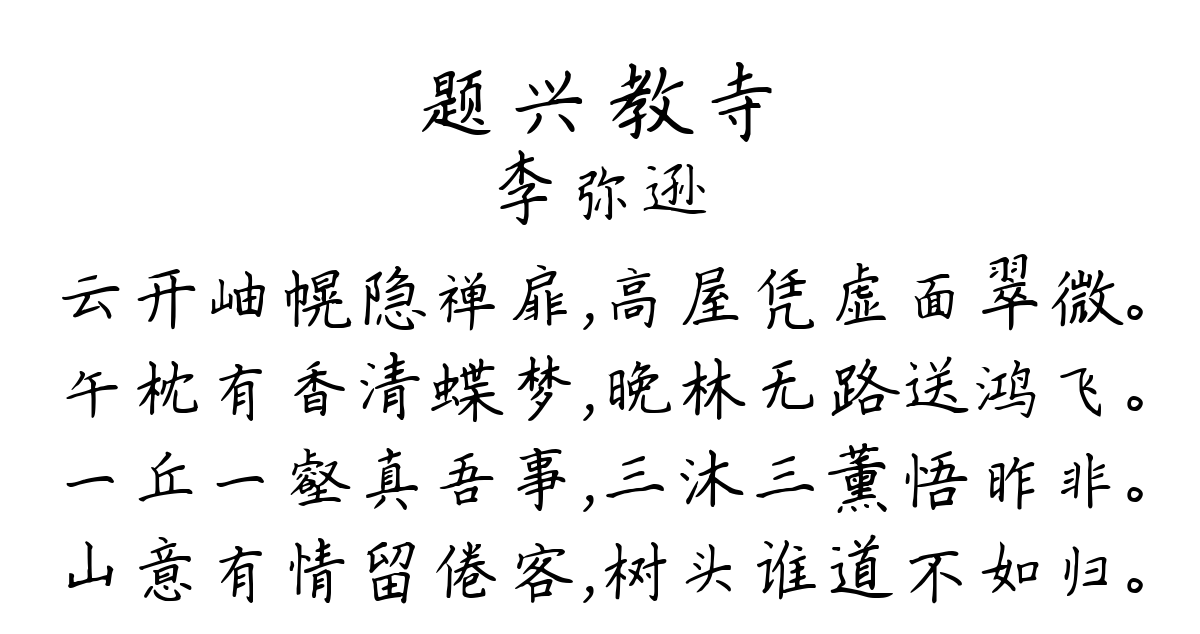 题兴教寺
李弥逊
云开岫幌隐禅扉,高屋凭虚面翠微。
午枕有香清蝶梦,晚林无路送鸿飞。
一丘一壑真吾事,三沐三薰悟昨非。
山意有情留倦客,树头谁道不如归。